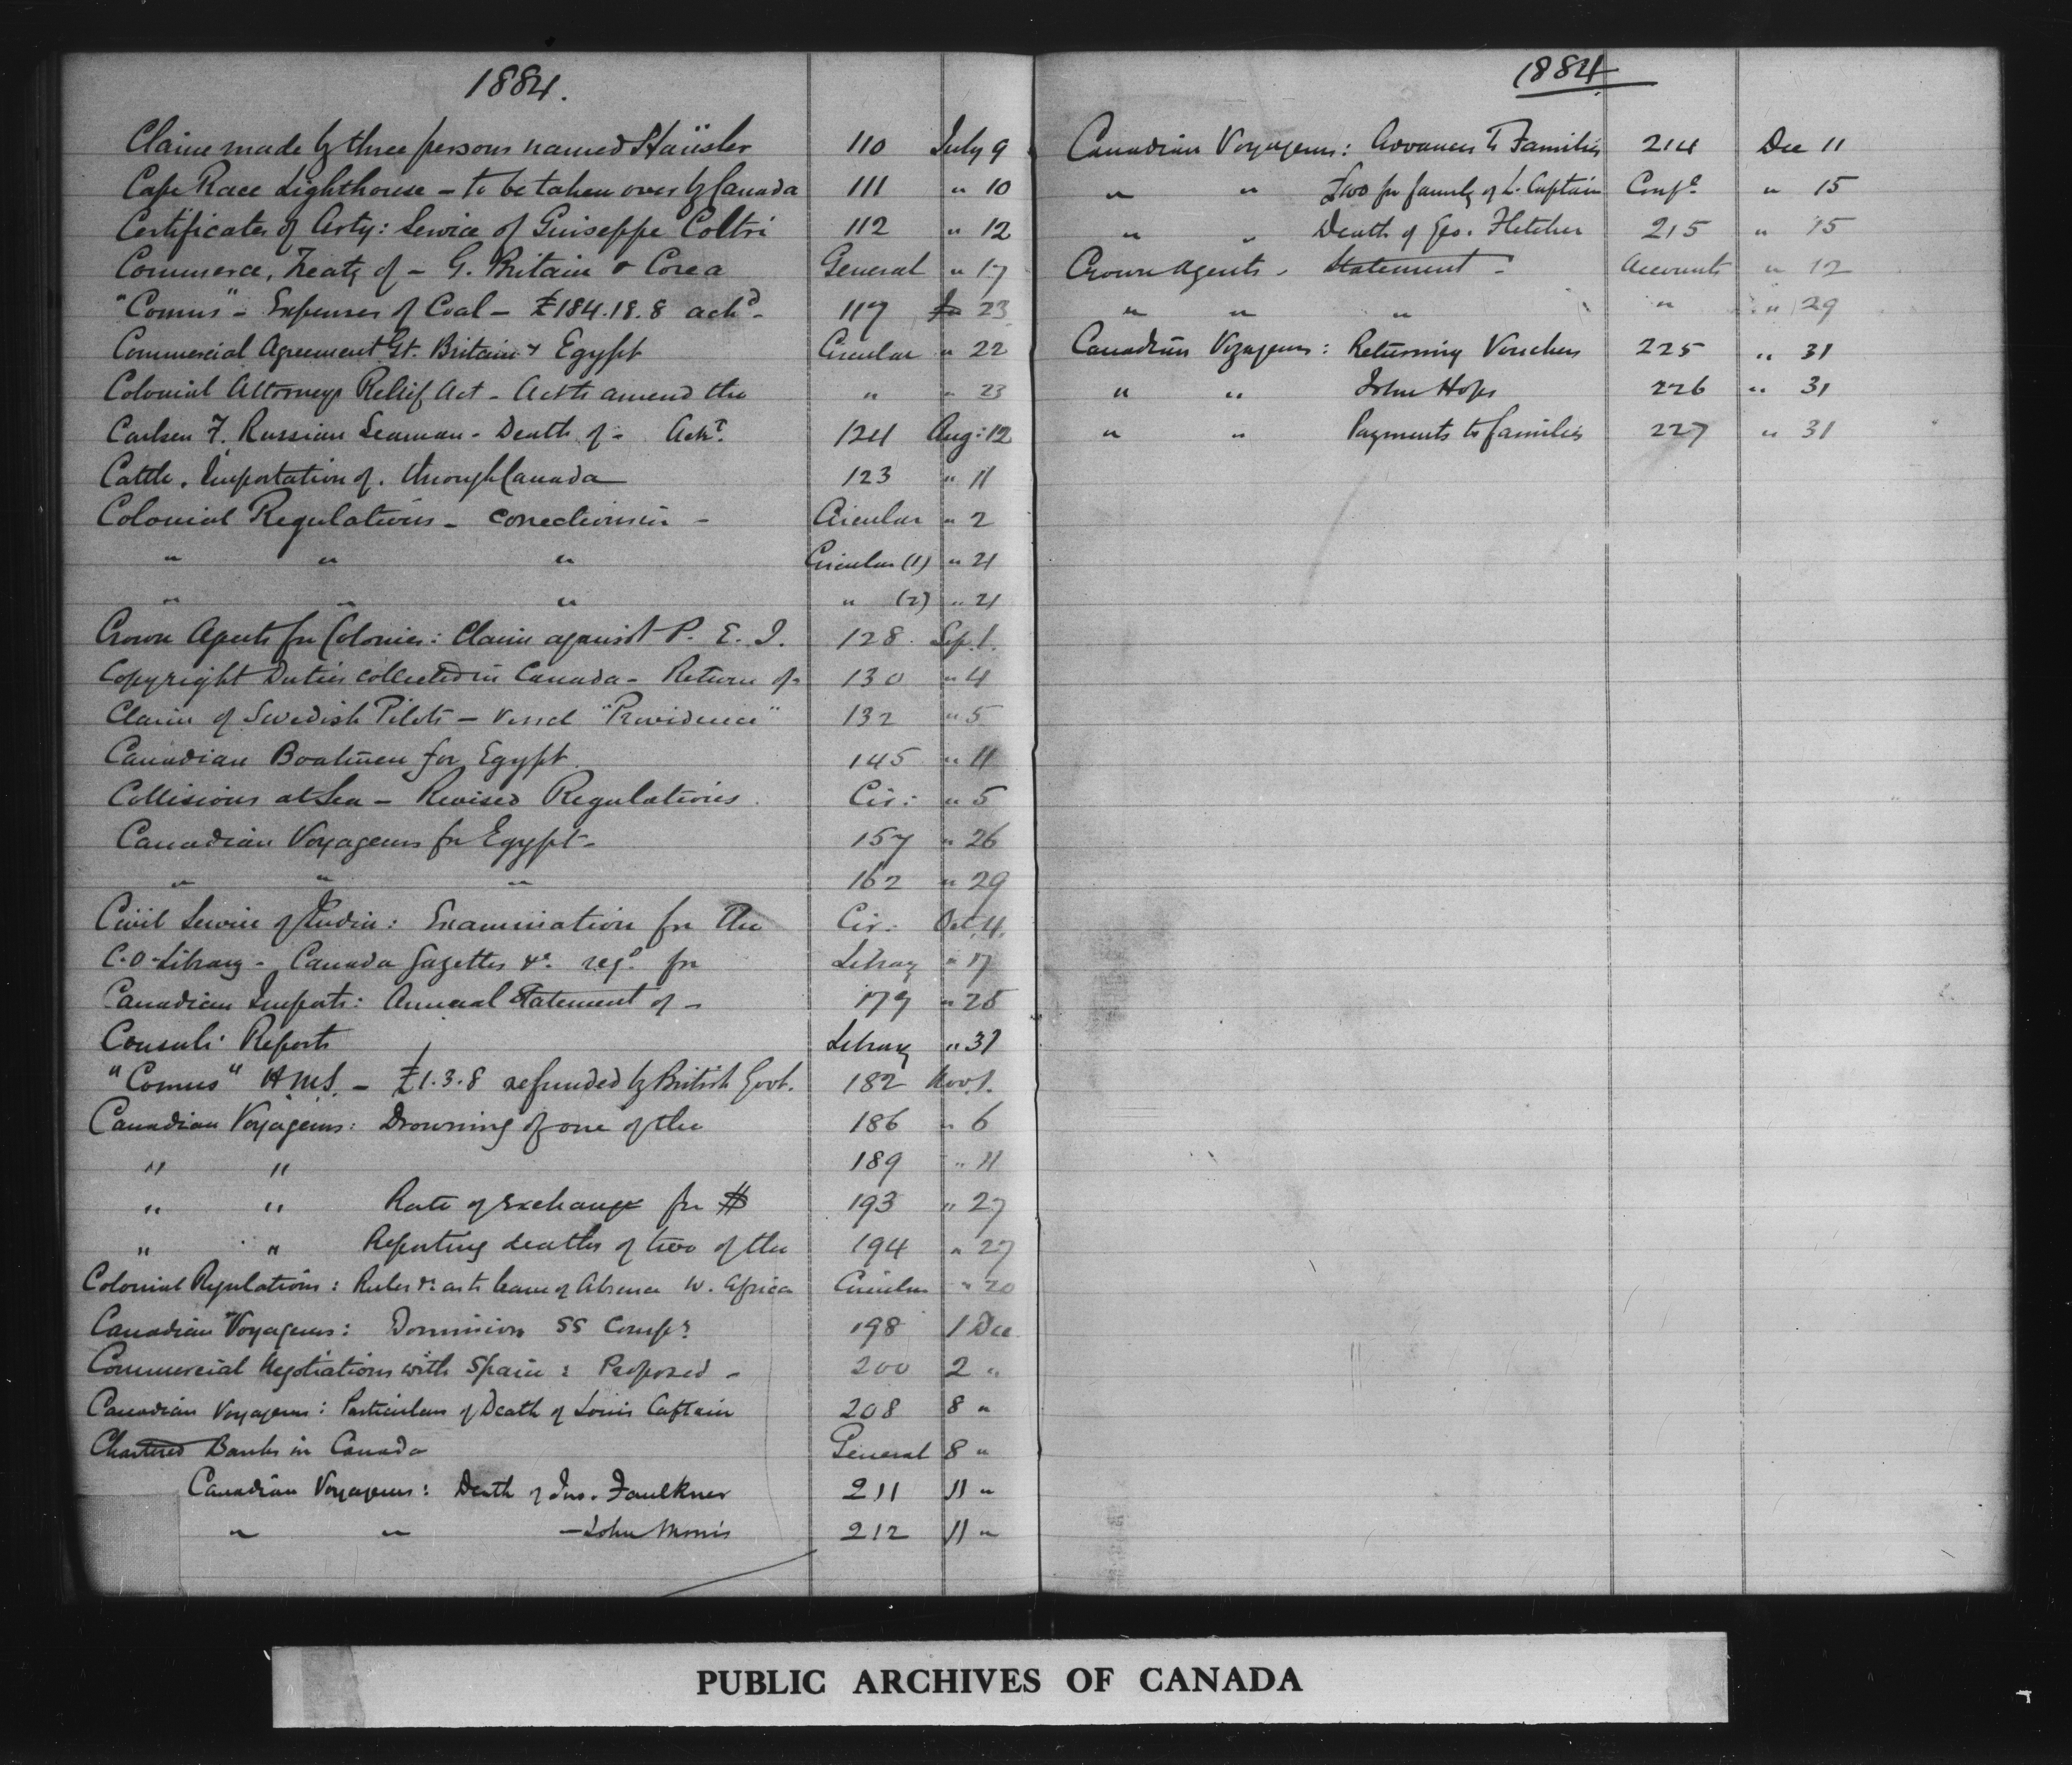 1884.
Claim made by three persons named Häüsler 110 July 9
Cape Race Lighthouse - to be taken over by Canada 111 " 10
Certificates of Arty: Service of Guiseppe Coltri 112 " 12
Commerce, Treaty of - G. Britain & Corea General " 17
"Comus" - Expenses of Coal - £184.18.8 ackd - 117 23
Commercial Agreement Gt. Britain & Egypt Circular " 22
Colonial Attorneys Relief Act - Act to amend the " " 23
Carlsen F. Russian Seaman - Death of - 124 Aug: 12
Cattle. Importation of. through Canada 123 " 11
Colonial Regulations - corrections in - Circular " 2
" " " Circular (1) " 21
" " " " (2) " 21
Crown Agents for Colonies: Claim against P. E. I. 128 Sep. 1.
Copyright Duties collected in Canada - Return of - 130 " 4
Claim of Swedish Pilots - Vessel "Providence" 132 " 5
Canadian Boatmen for Egypt. 145 " 11
Collisions at Sea - Revised Regulations. Cir: " 5
Canadian Voyageurs for Egypt - 157 " 26
" " " 162 " 29
Civil Service of India: Examination for the Cir: Oct. 4.
C.O. Library - Canada Gazettes &c. reqd. for Library " 17
Canadian Imports: Annual Statement of - 179 " 25
Consuls' Reports Library " 31
"Comus" H.M.S. - £1.3.8 refunded by British Govt. 182 Nov. 1.
Canadian Voyageurs: Drowning of one of the 186 " 6
" " 189 " 11
" " Rate of exchange for $ 193 " 27
" " Reporting deaths of two of the 194 " 27
Colonial Regulations: Rules &c. as to leave of Absence W. Africa Circular " 20
Canadian Voyageurs: Dominion SS Compy. 198 1 Dec
Commercial Negotiations with Spain: Proposed - 200 2 "
Canadian Voyageurs: Particulars of Death of Louis Captain 208 8 "
Chartered Banks in Canada General 8 "
Canadian Voyageurs: Death of Jas. Faulkner 211 11 "
" " - John Morris 212 11 "
1884
Canadian Voyageurs: Advances to Families 214 Dec 11
" " £100 for family of L. Captain Confl. " 15
" " Death of Geo. Fletcher 215 " 15
Crown Agents - Statement - Accounts " 12
" " " " " 29
Canadian Voyageurs: Returning Vouchers 225 " 31
" " John Hops 226 " 31
" " Payments to families 227 " 31
PUBLIC ARCHIVES OF CANADA